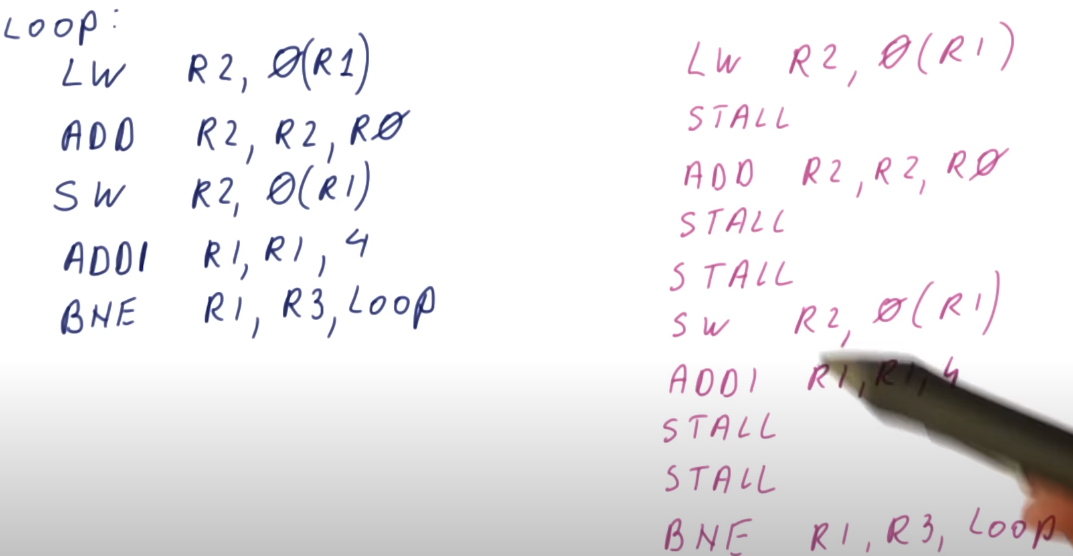 LOOP:
LW R2, Ø(R1)
ADD R2, R2, RØ
SW R2, Ø(R1)
ADDI R1, R1, 4
BNE R1, R3, LOOP
LW R2, Ø(R1)
STALL
ADD R2, R2, RØ
STALL
STALL
SW R2, Ø(R1)
ADDI R1, R1, 4
STALL
STALL
BNE R1, R3, LOOP